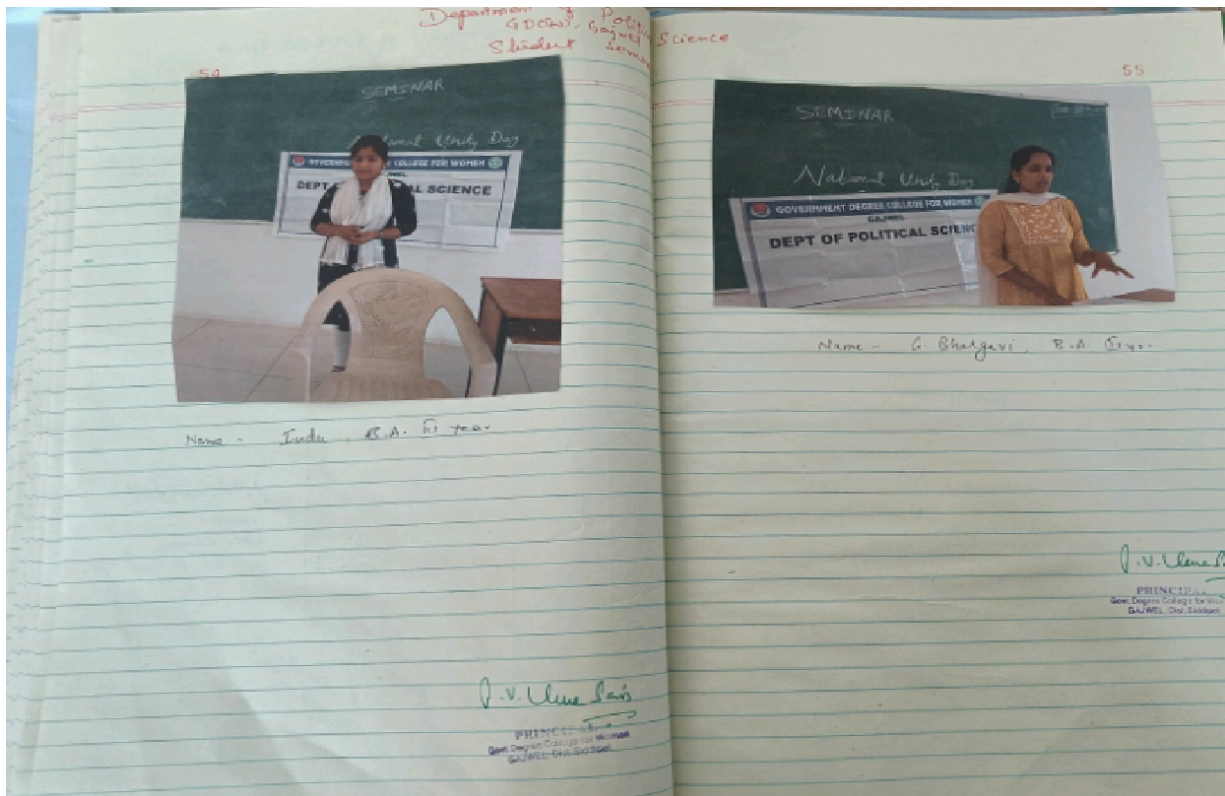 Department of Political Science
GDC(W), Gajwel
Student Seminar
54
SEMINAR
National Unity Day
GOVERNMENT COLLEGE FOR WOMEN
GAJWEL
DEPT CAL SCIENCE
Name - Indu, B.A. III year
P.V.
PRINCIPAL
Govt. Degree College for Women
GAJWEL, Dist. Siddipet
55
SEMINAR
National Unity Day
GOVERNMENT DEGREE COLLEGE FOR WOMEN
GAJWEL
DEPT OF POLITICAL SCIENC
Name - G. Bhargavi, B.A. II yr.
P.V.
PRINCIPAL
Govt. Degree College for Wo
GAJWEL, Dist. Siddipet